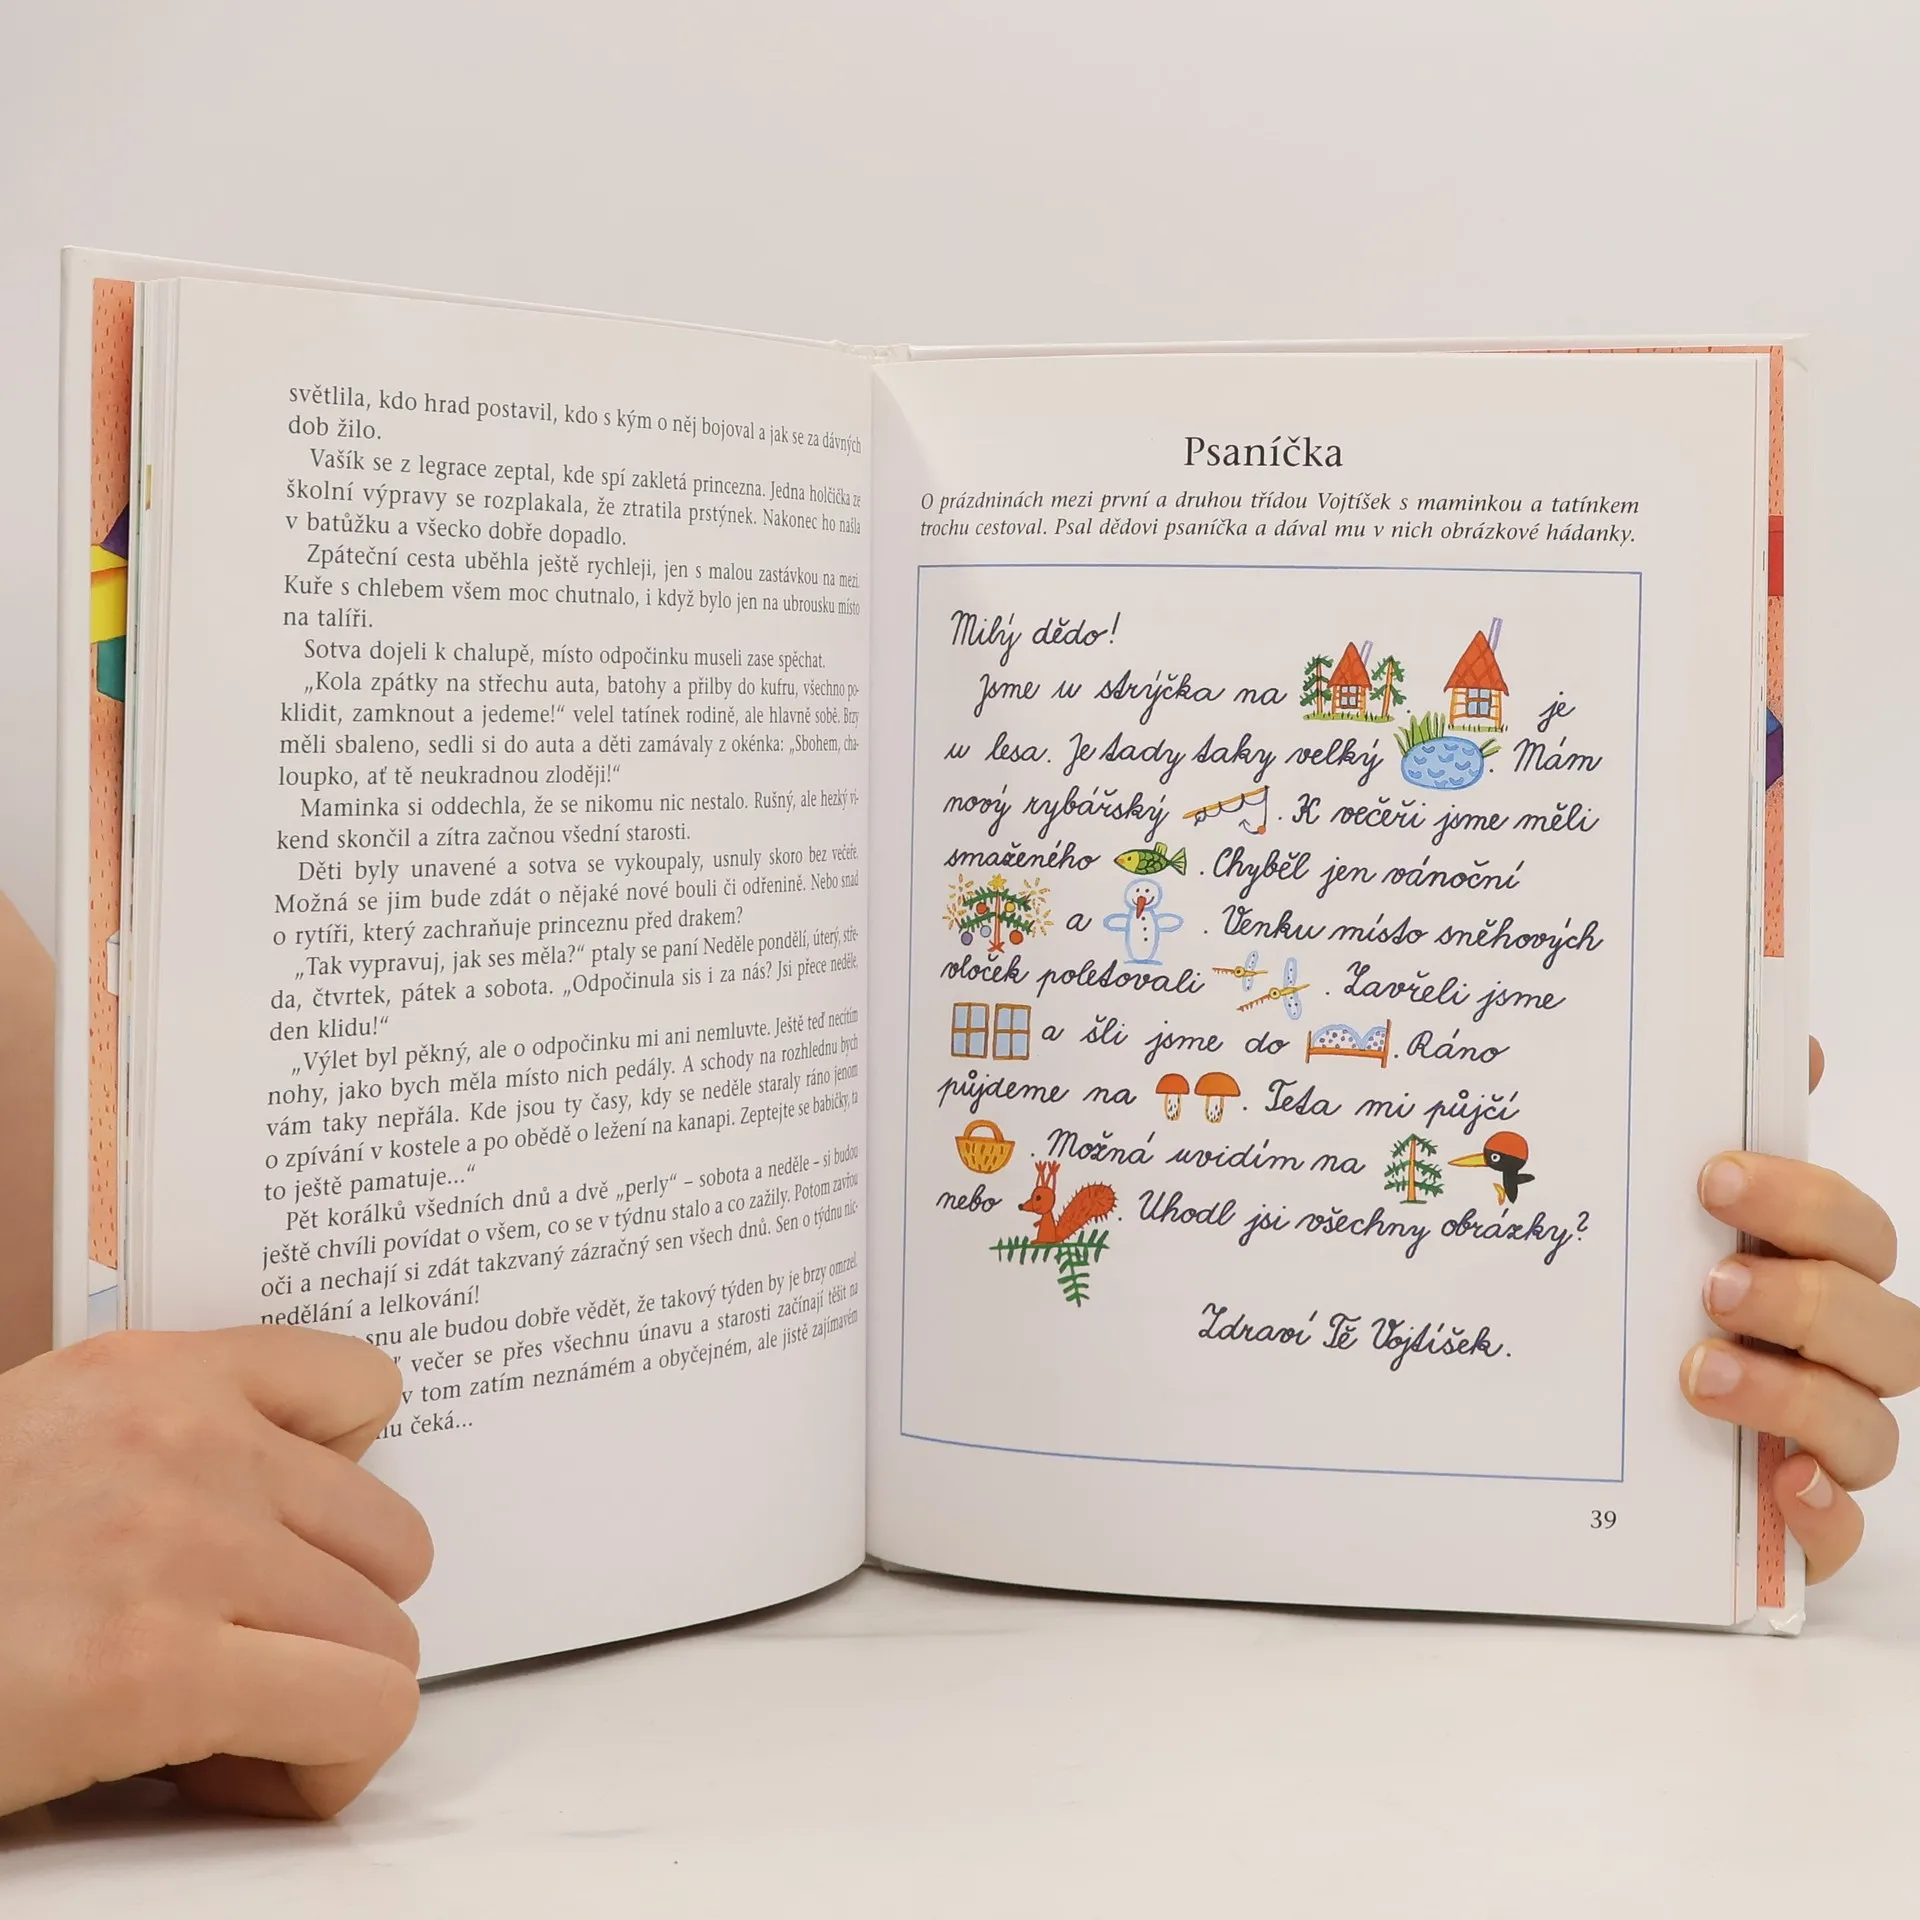 světlila, kdo hrad postavil, kdo s kým o něj bojoval a jak se za dávných
dob žilo.
Vašík se z legrace zeptal, kde spí zakletá princezna. Jedna holčička ze
školní výpravy se rozplakala, že ztratila prstýnek. Nakonec ho našla
v batůžku a všecko dobře dopadlo.
Zpáteční cesta uběhla ještě rychleji, jen s malou zastávkou na mezi.
Kuře s chlebem všem moc chutnalo, i když bylo jen na ubrousku místo
na talíři.
Sotva dojeli k chalupě, místo odpočinku museli zase spěchat.
„Kola zpátky na střechu auta, batohy a přilby do kufru, všechno po-
klidit, zamknout a jedeme!“ velel tatínek rodině, ale hlavně sobě. Brzy
měli sbaleno, sedli si do auta a děti zamávaly z okénka: „Sbohem, cha-
loupko, ať tě neukradnou zloději!“
Maminka si oddechla, že se nikomu nic nestalo. Rušný, ale hezký ví-
kend skončil a zítra začnou všední starosti.
Děti byly unavené a sotva se vykoupaly, usnuly skoro bez večeře.
Možná se jim bude zdát o nějaké nové bouli či odřenině. Nebo snad
o rytíři, který zachraňuje princeznu před drakem?
„Tak vypravuj, jak ses měla?“ ptaly se paní Neděle pondělí, úterý, stře-
da, čtvrtek, pátek a sobota. „Odpočinula sis i za nás? Jsi přece neděle,
den klidu!“
„Výlet byl pěkný, ale o odpočinku mi ani nemluvte. Ještě teď necítím
nohy, jako bych měla místo nich pedály. A schody na rozhlednu bych
vám taky nepřála. Kde jsou ty časy, kdy se neděle staraly ráno jenom
o zpívání v kostele a po obědě o ležení na kanapi. Zeptejte se babičky, ta
to ještě pamatuje...“
Pět korálků všedních dnů a dvě „perly“ – sobota a neděle – si budou
ještě chvíli povídat o všem, co se v týdnu stalo a co zažily. Potom zavřou
oči a nechají si zdát takzvaný zázračný sen všech dnů. Sen o týdnu nic-
nedělání a lelkování!
snu ale budou dobře vědět, že takový týden by je brzy omrzel.
večer se přes všechnu únavu a starosti začínají těšit na
v tom zatím neznámém a obyčejném, ale jistě zajímavém
čeká...
Psaníčka
O prázdninách mezi první a druhou třídou Vojtíšek s maminkou a tatínkem
trochu cestoval. Psal dědovi psaníčka a dával mu v nich obrázkové hádanky.
Milý dědo!
Jsme u strýčka na . je
u lesa. Je tady taky velký . Mám
nový rybářský . K večeři jsme měli
smaženého . Chyběl jen vánoční
a . Venku místo sněhových
vloček poletovali . Zavřeli jsme
a šli jsme do . Ráno
půjdeme na . Teta mi půjčí
. Možná uvidím na
nebo . Uhodl jsi všechny obrázky?
Zdraví Tě Vojtíšek.
39